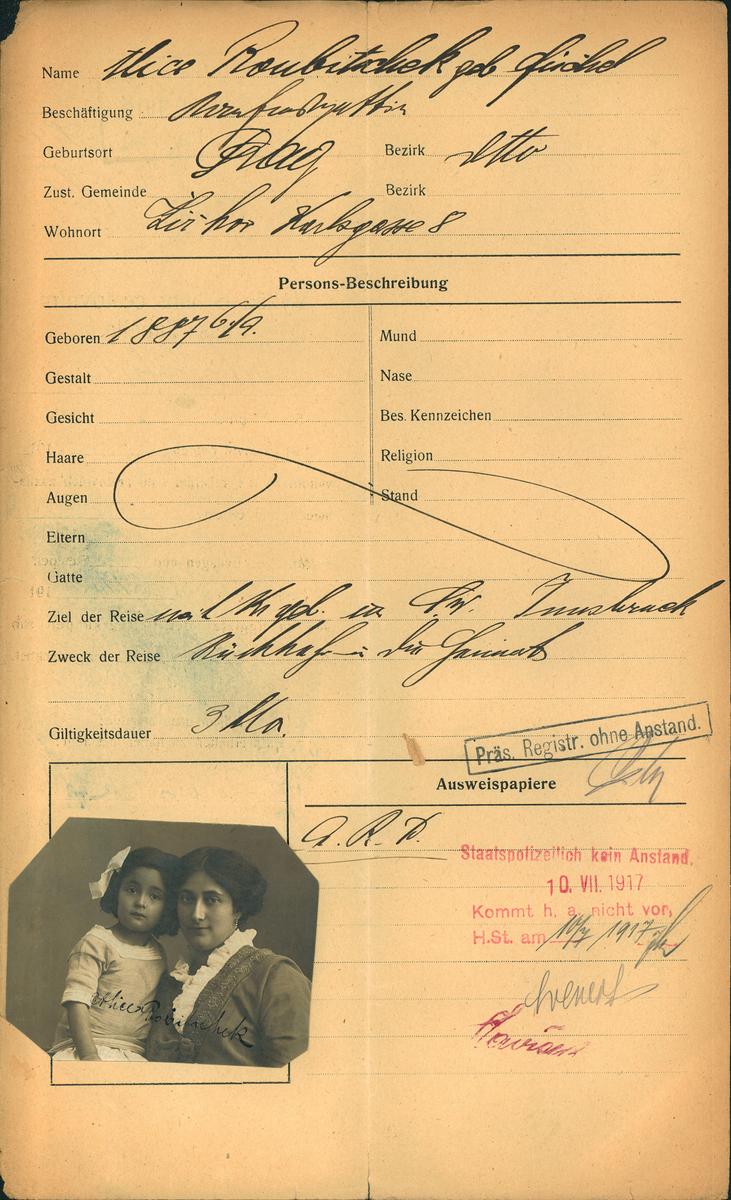 Name Alice Roubitschek geb
Beschäftigung
Geburtsort Prag Bezirk dtto
Zust. Gemeinde Bezirk
Wohnort Žižkov Karlsgasse 8
Persons-Beschreibung
Geboren 1887 6/9. Mund
Gestalt Nase
Gesicht Bes. Kennzeichen
Haare Religion
Augen Stand
Eltern
Gatte
Ziel der Reise Innsbruck
Zweck der Reise die Heimat
Giltigkeitsdauer 3 Mo.
Präs. Registr. ohne Anstand.
Ausweispapiere
Staatspolizeilich kein Anstand.
10. VII. 1917
Kommt h. a. nicht vor,
H.St. am 10/7 1917
Alice Robitschek